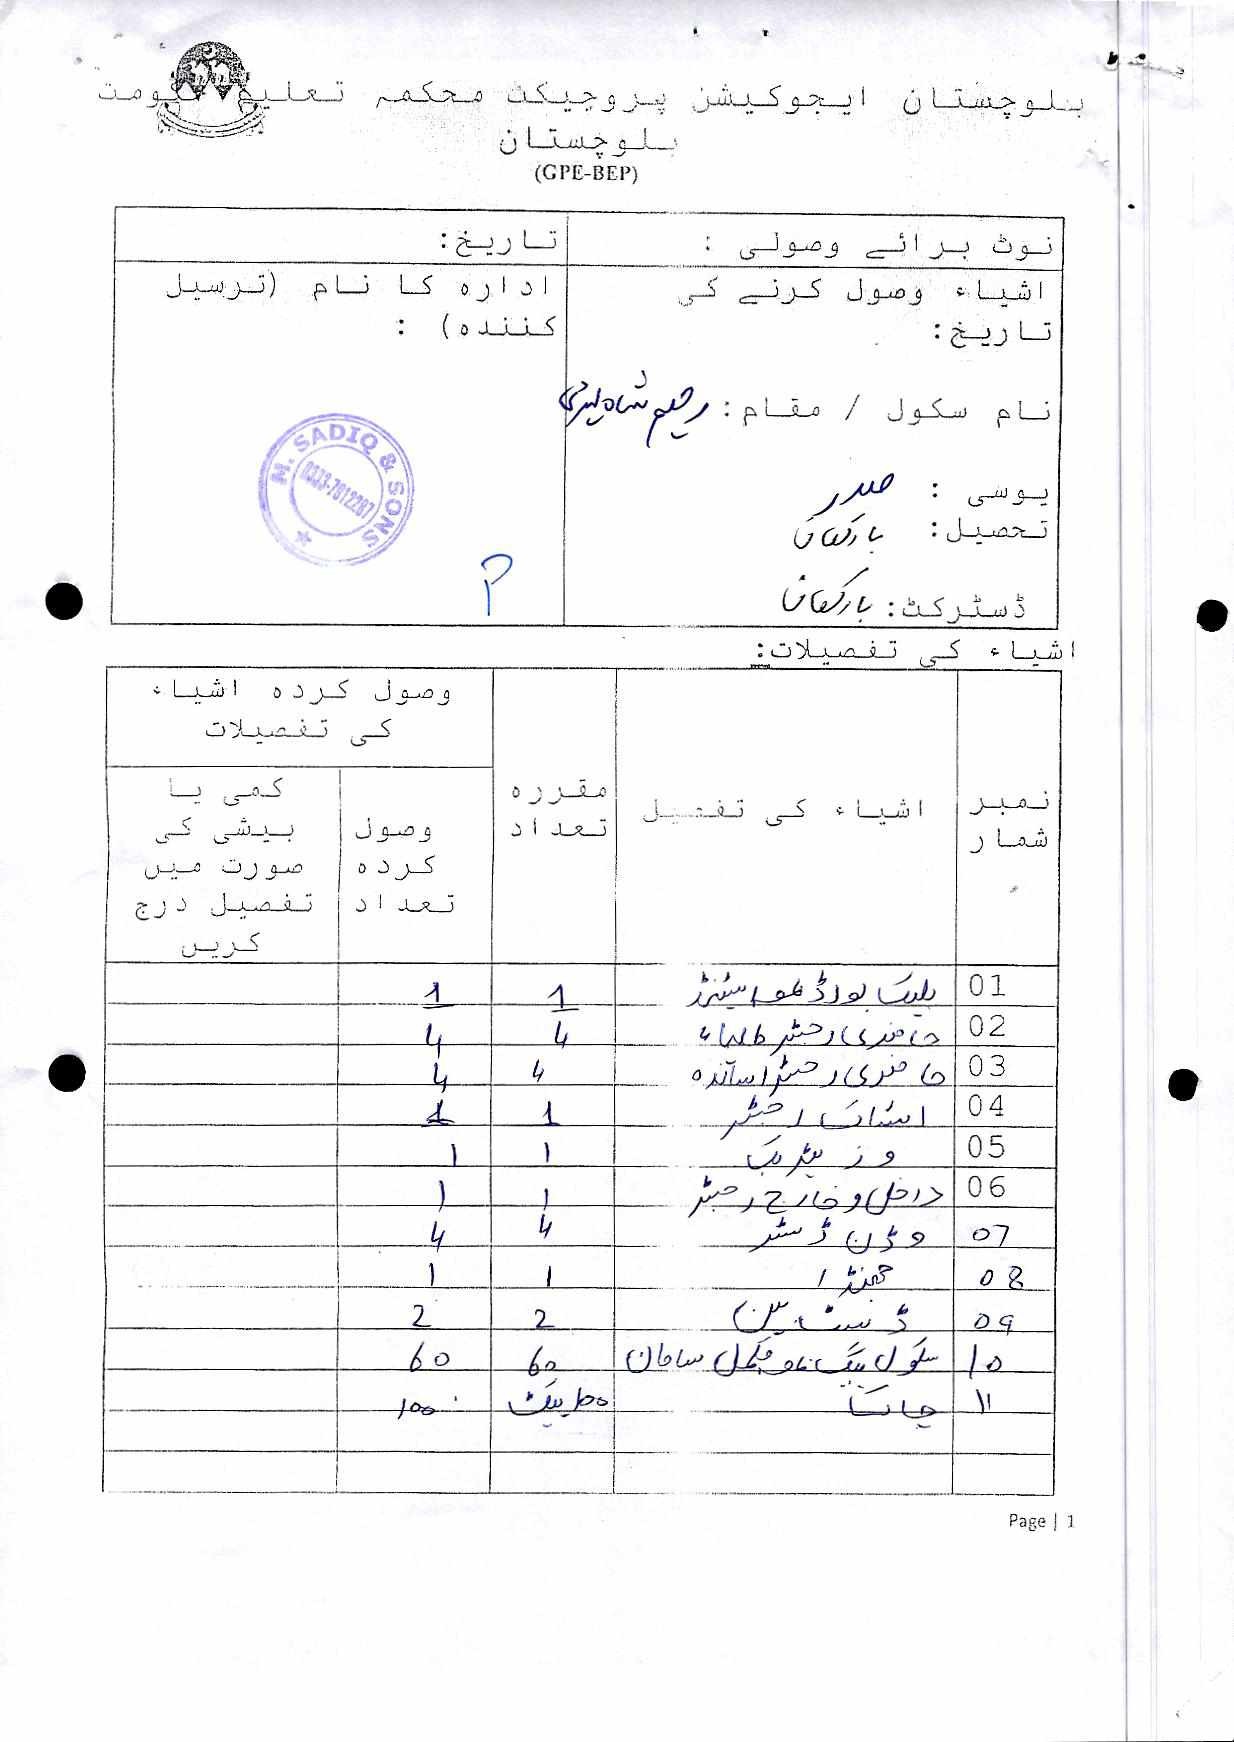 بلوچستان ایجوکیشن پروجیکٹ محکمہ تعلیم حکومت
بلوچستان
(GPE-BEP)
نوٹ برائے وصولی :
تاریخ:
اشیاء وصول کرنے کی
تاریخ:
نام سکول / مقام: رحیم شاہ
یوسی : صدر
تحصیل: بارکھان
ڈسٹرکٹ: بارکھان
ادارہ کا نام (ترسیل
کنندہ) :
M. SADIQ & SONS
0333-7012287
اشیاء کی تفصیلات:
نمبر شمار
اشیاء کی تفصیل
مقررہ تعداد
وصول کردہ اشیاء
کی تفصیلات
وصول
کردہ
تعداد
کمی یا
بیشی کی
صورت میں
تفصیل درج
کریں
01 بلیک بورڈ اسٹینڈ 1 1
02 حاضری رجسٹر طلباء 4 4
03 حاضری رجسٹر اساتذہ 4 4
04 اسٹاک رجسٹر 1 1
05 وزیٹر بک 1 1
06 داخل و خارج رجسٹر 1 1
07 وڈن ڈسٹر 4 4
08 جھنڈا 1 1
09 ڈسٹ بن 2 2
10 سکول بیگ مکمل سامان 60 60
11 چاک پیکٹ 100
Page | 1